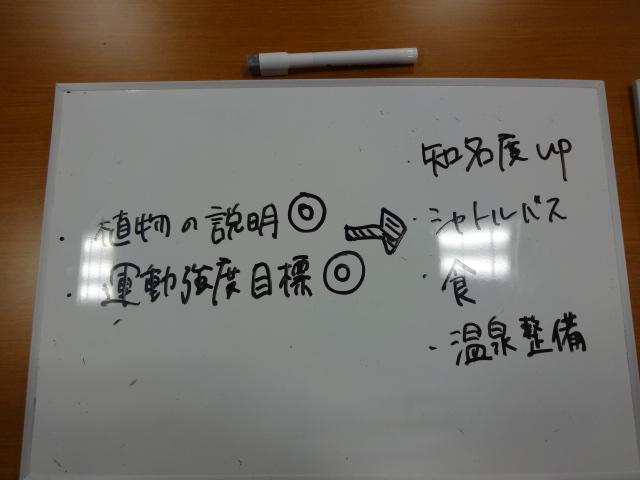 ・植物の説明◎
・運動強度目標◎
→
・知名度up
・シャトルバス
・食
・温泉整備